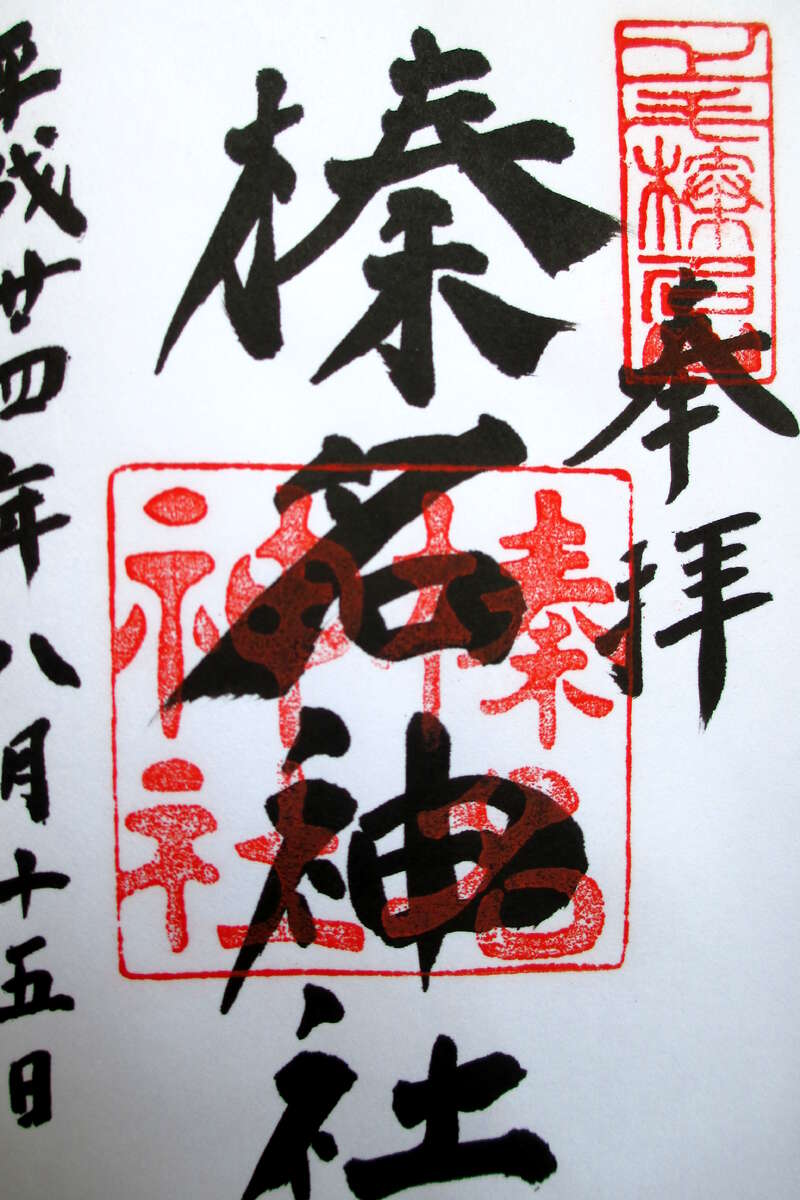 奉拝
榛名神社
榛名神社
平成廿四年八月十五日